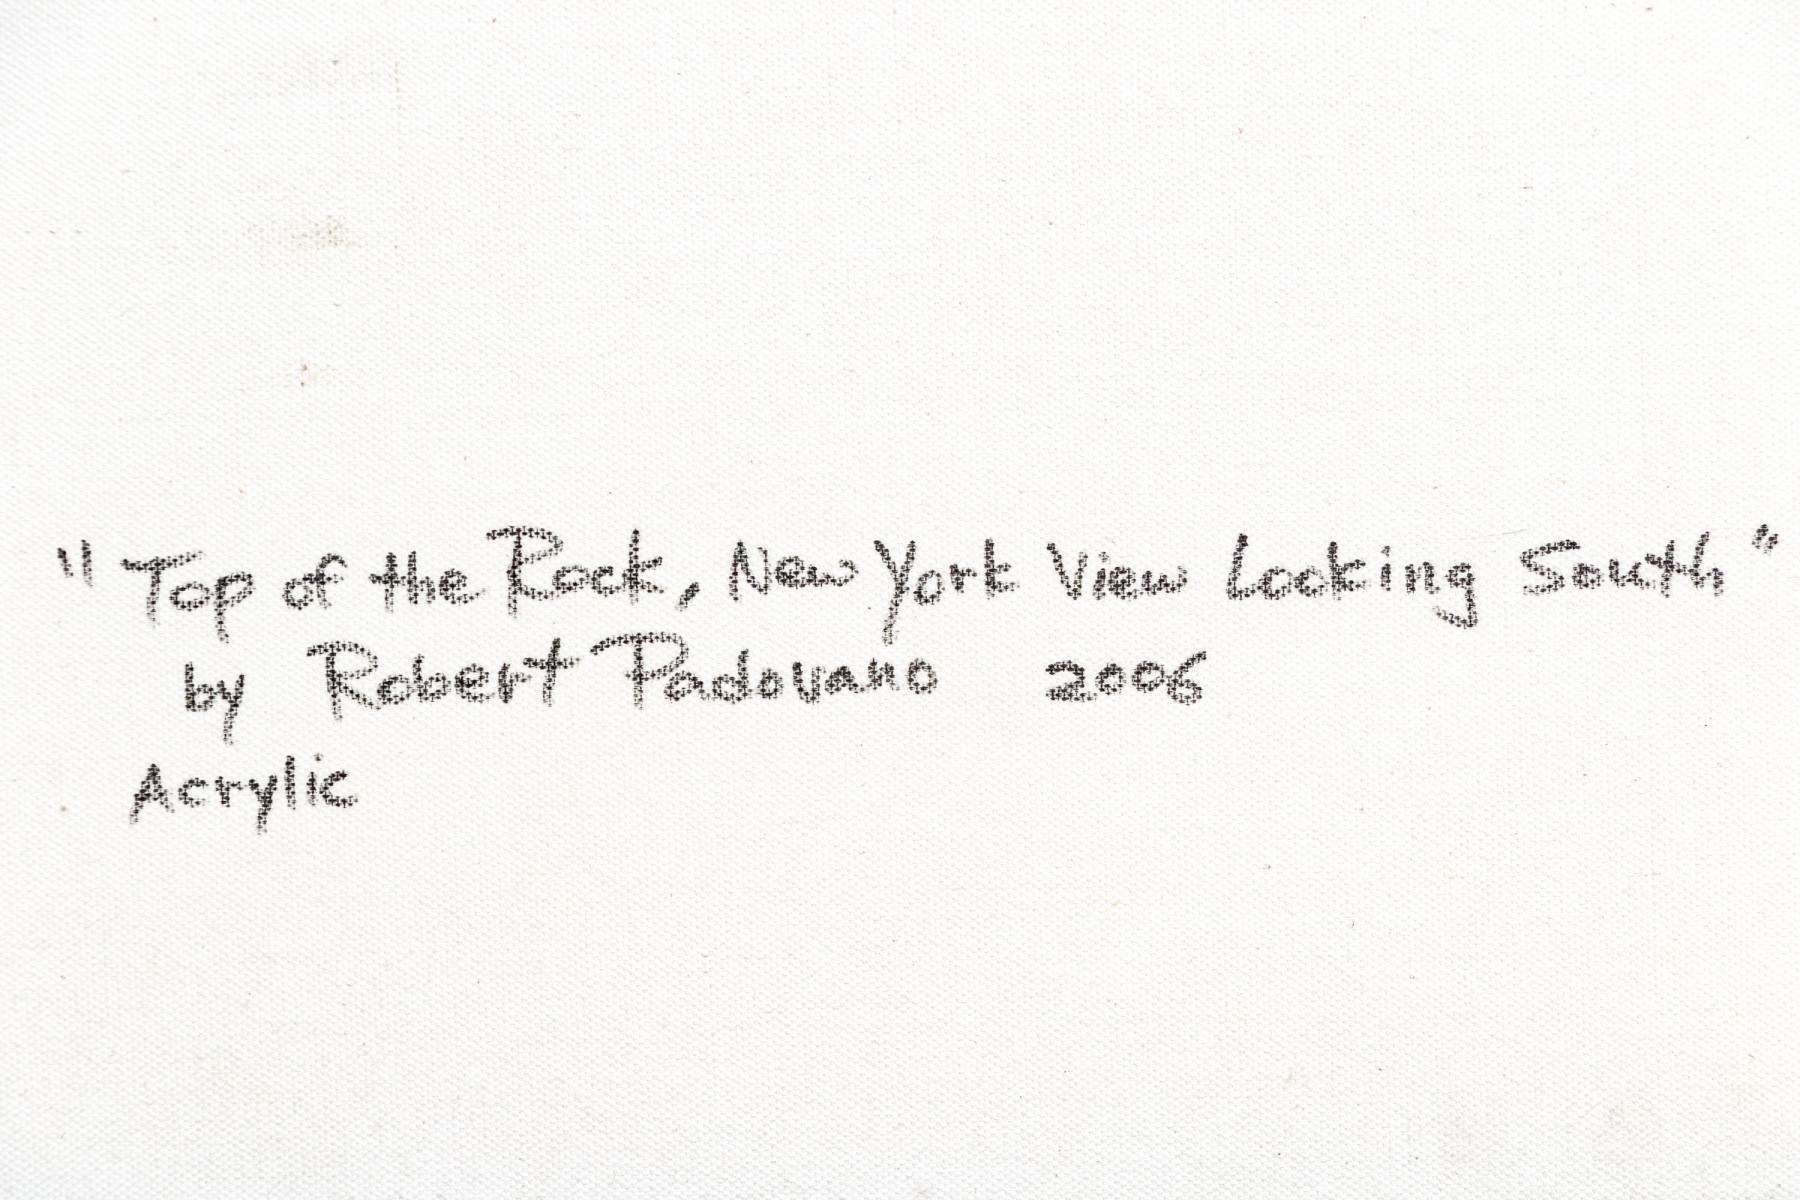 "Top of the Rock, New York View Looking South"
by Robert Padovano 2006
Acrylic